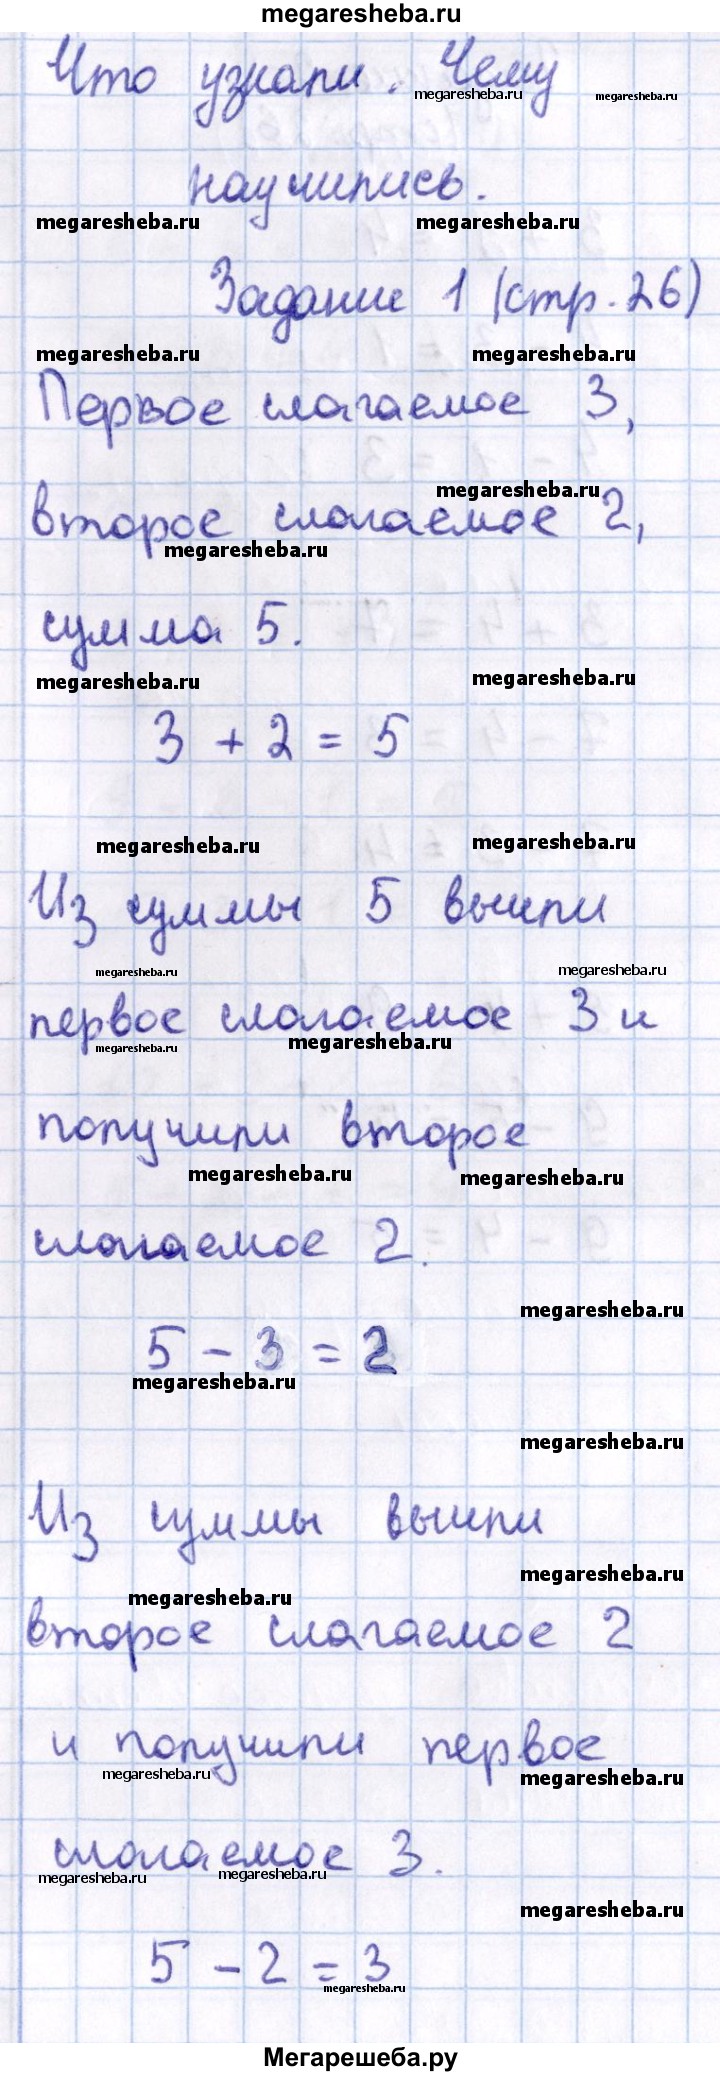 megaresheba.ru
Что узнали. Чему
megaresheba.ru megaresheba.ru
научились.
megaresheba.ru megaresheba.ru
Задание 1 (стр. 26)
megaresheba.ru megaresheba.ru
Первое слагаемое 3,
megaresheba.ru
второе слагаемое 2,
megaresheba.ru
сумма 5.
megaresheba.ru megaresheba.ru
3 + 2 = 5
megaresheba.ru megaresheba.ru
Из суммы 5 вычли
megaresheba.ru megaresheba.ru
первое слагаемое 3 и
megaresheba.ru megaresheba.ru
получили второе
megaresheba.ru megaresheba.ru
слагаемое 2.
megaresheba.ru
5 - 3 = 2
megaresheba.ru
megaresheba.ru
Из суммы вычли
megaresheba.ru
megaresheba.ru
второе слагаемое 2
и получили первое
megaresheba.ru megaresheba.ru
слагаемое 3.
megaresheba.ru megaresheba.ru
megaresheba.ru
5 - 2 = 3
megaresheba.ru
Мегарешеба.ру